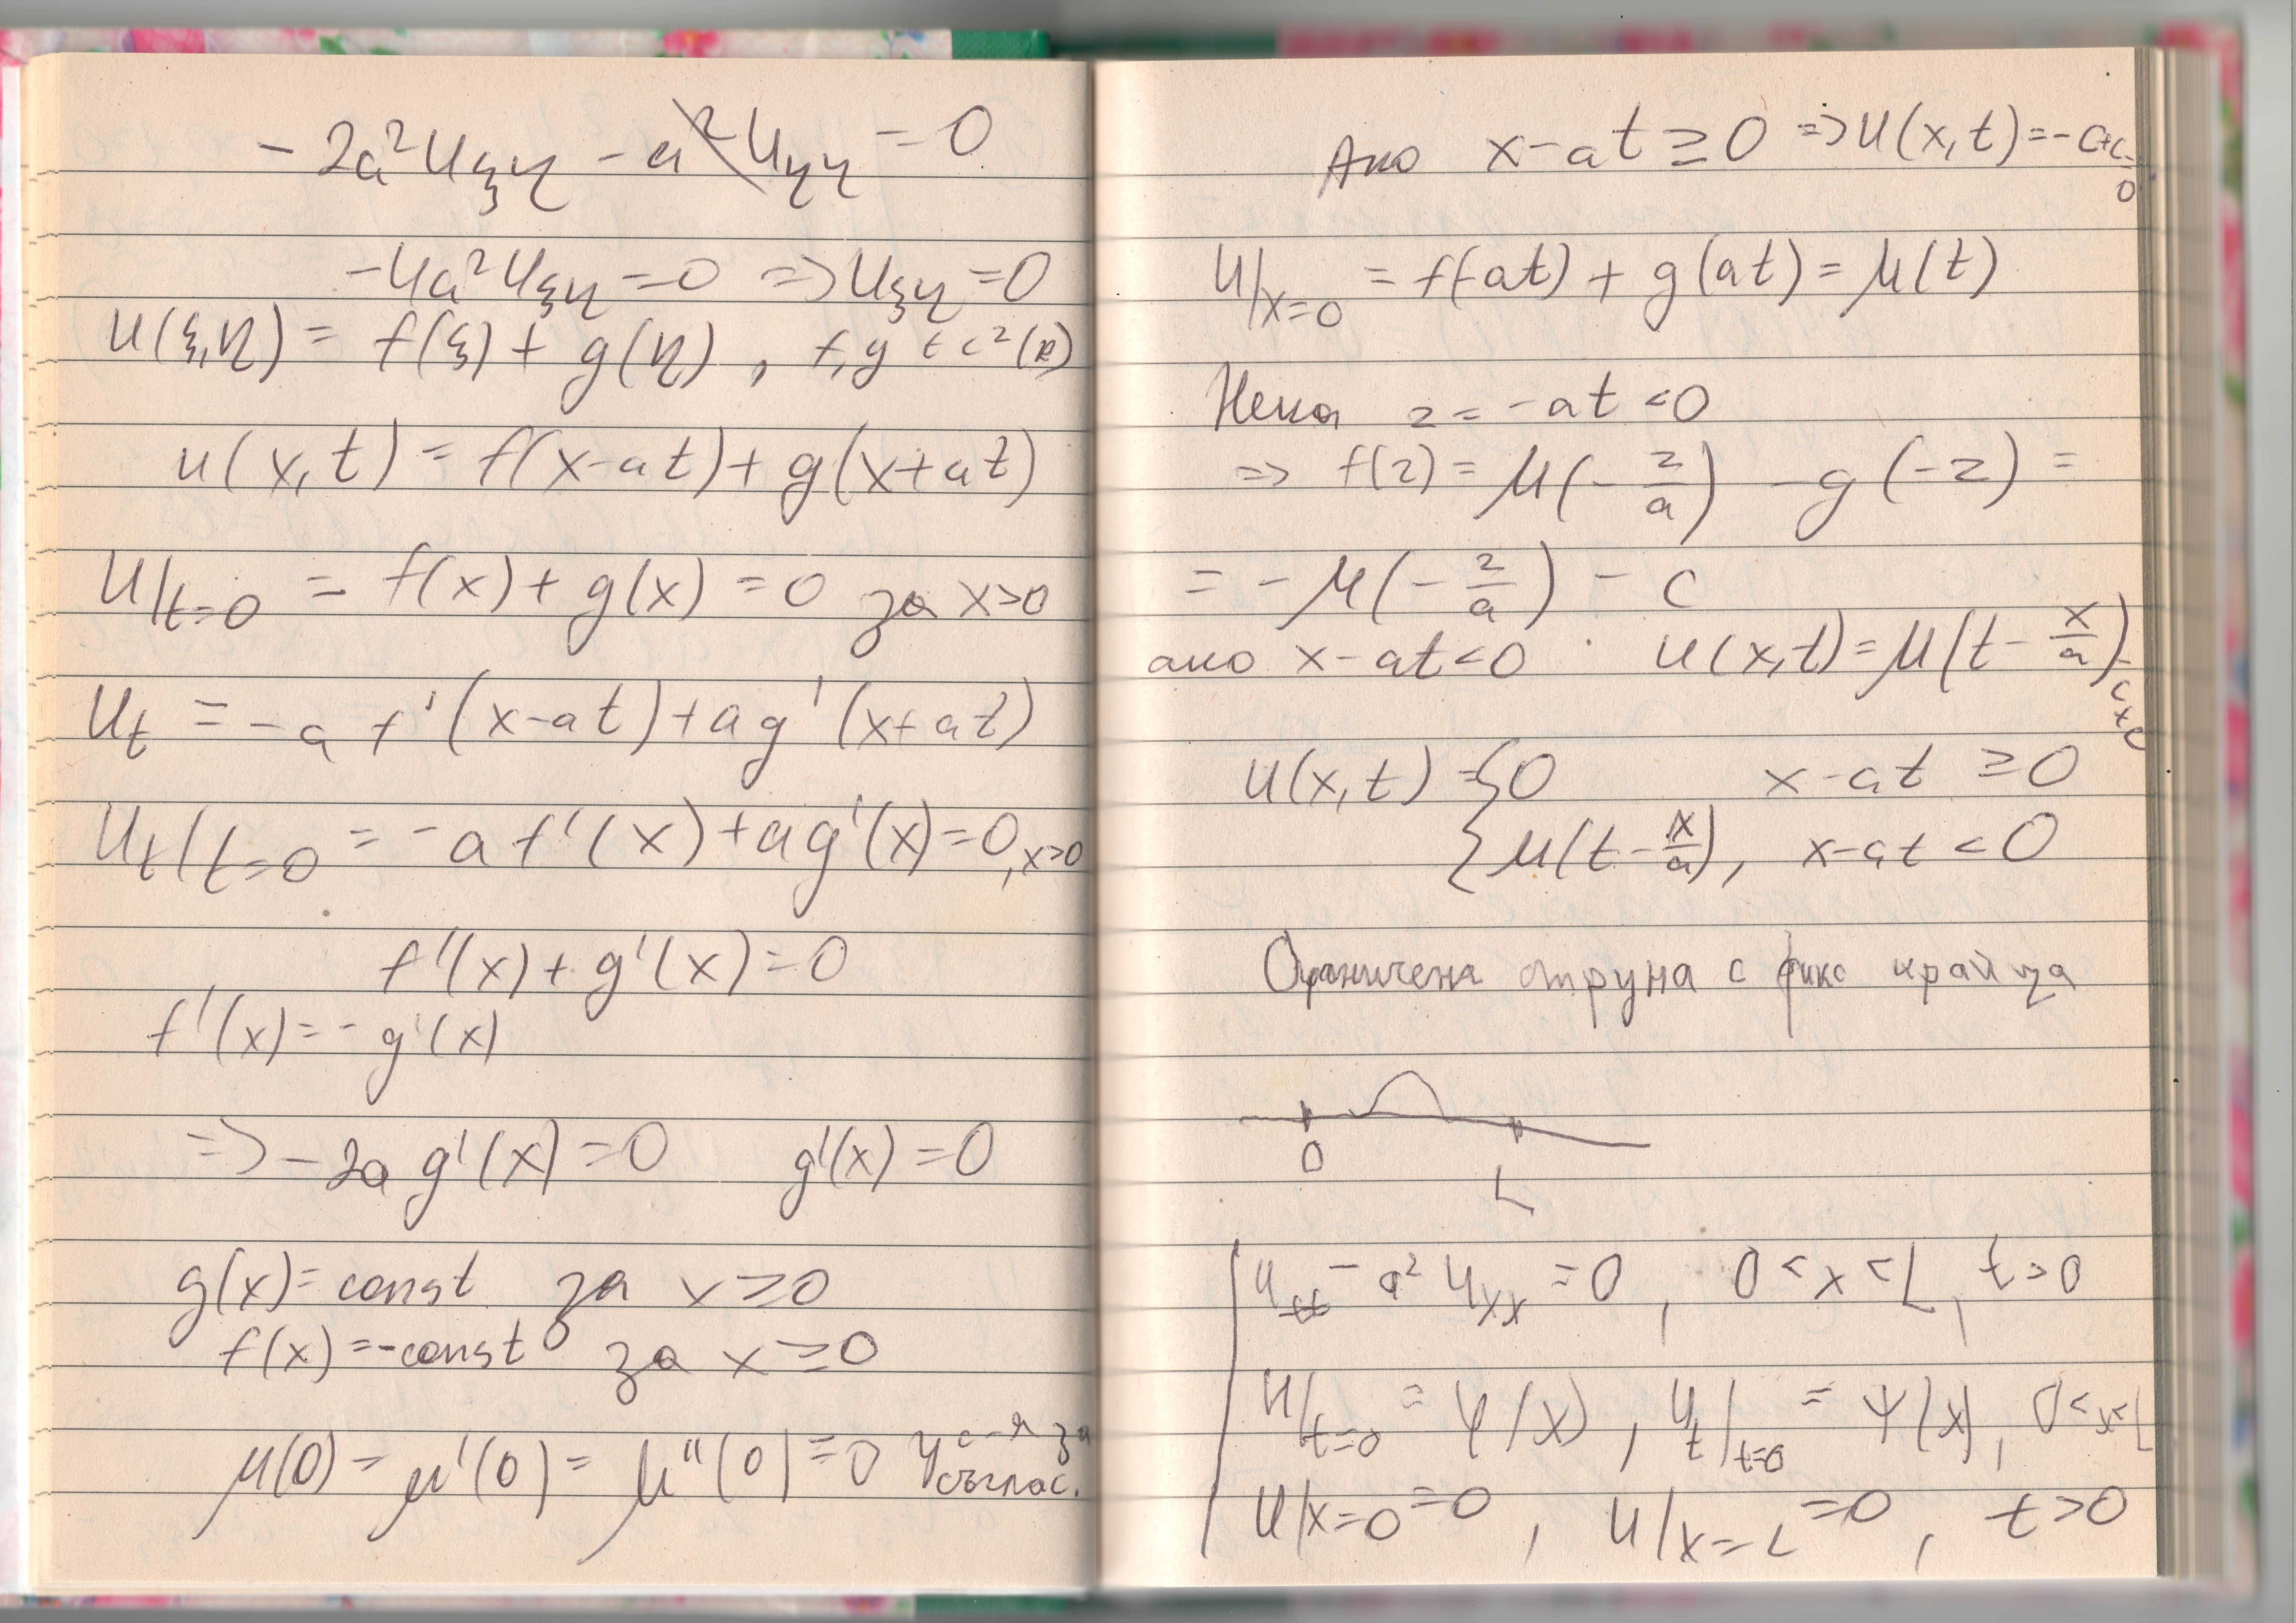 - 2a²u_ξη - a²u_ηη = 0
-4a²u_ξη = 0 => u_ξη = 0
u(ξ,η) = f(ξ) + g(η) , f,g ∈ C²(R)
u(x,t) = f(x-at) + g(x+at)
u|t=0 = f(x) + g(x) = 0 за x>0
u_t = -a f'(x-at) + a g'(x+at)
u_t|t=0 = -a f'(x) + a g'(x) = 0, x>0
f'(x) + g'(x) = 0
f'(x) = - g'(x)
=> -2a g'(x) = 0 g'(x) = 0
g(x) = const за x ≥ 0
f(x) = -const за x ≥ 0
μ(0) = μ'(0) = μ''(0) = 0 у-с-я за съглас.
Ако x-at ≥ 0 => u(x,t) = -c+c=0
u|x=0 = f(-at) + g(at) = μ(t)
Нека z = -at < 0
=> f(z) = μ(-z/a) - g(-z) =
= - μ(-z/a) - c
ако x-at < 0 u(x,t) = μ(t - x/a) -c+c
u(x,t) = { 0 x-at ≥ 0
{ μ(t - x/a), x-at < 0
Ограничена струна с фикс краища
0
L
u_tt - a² u_xx = 0 , 0 < x < L, t > 0
u|t=0 = φ(x) , u_t|t=0 = ψ(x), 0 < x < L
u|x=0 = 0 , u|x=L = 0 , t > 0